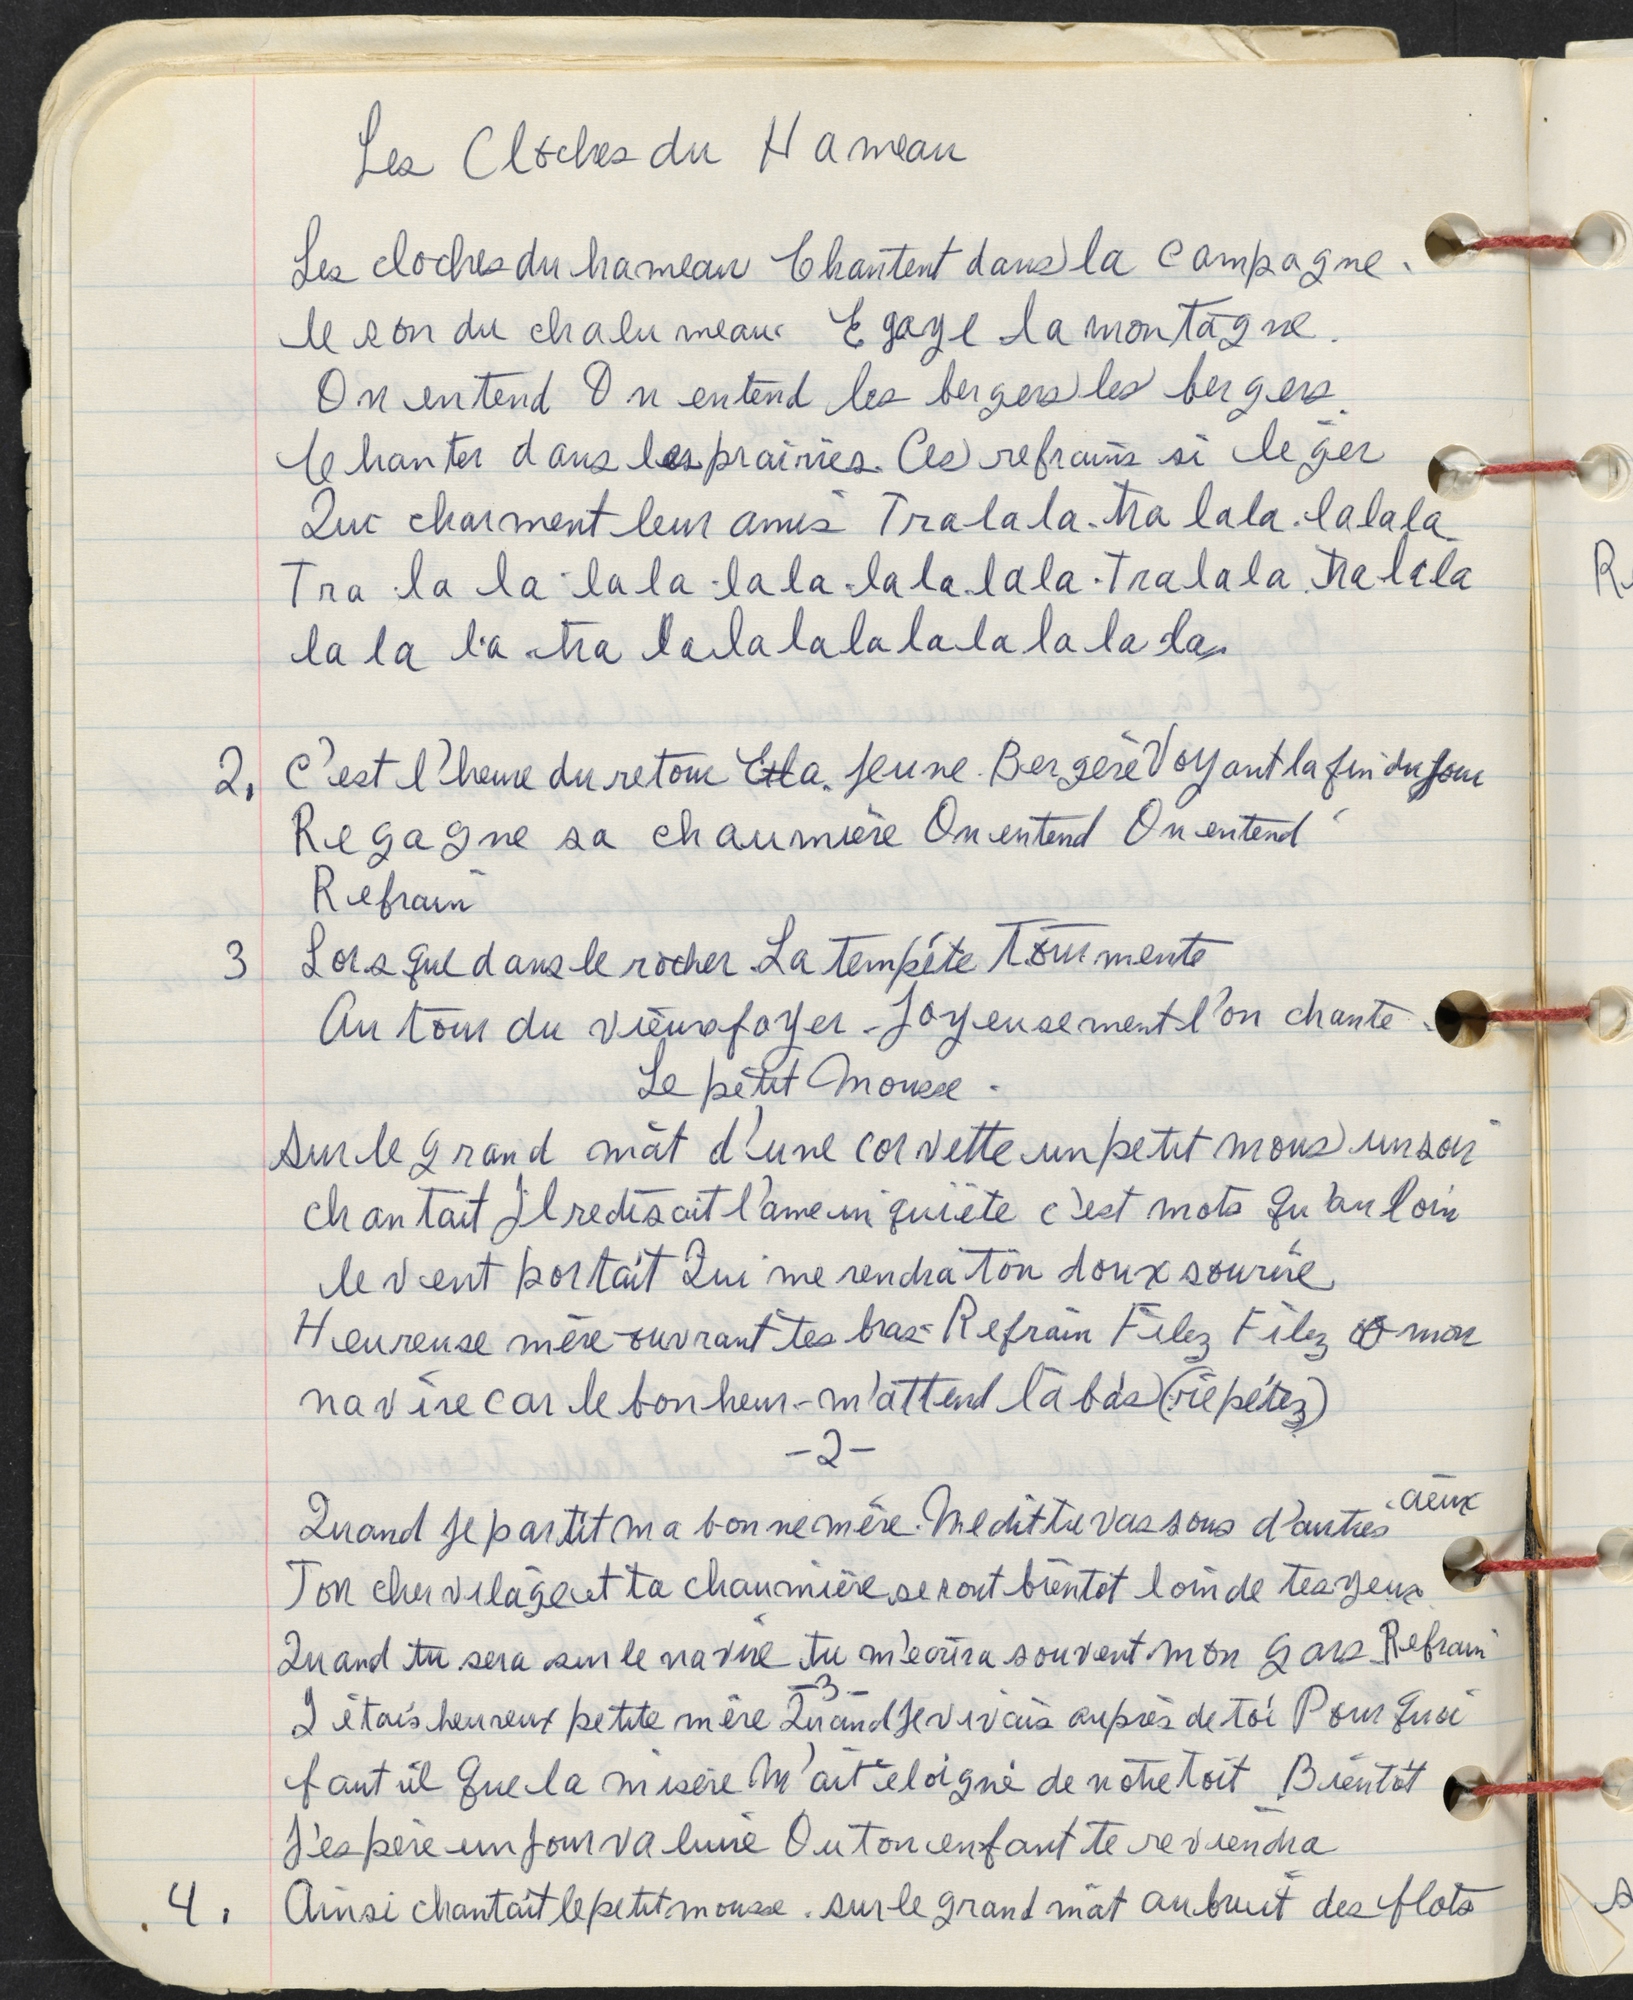 Les Cloches du Hameau
Les cloches du hameau Chantent dans la campagne.
le son du chalumeau Egaye la montagne.
On entend On entend les bergers les bergers
Chanter dans les prairies. Ces refrains si leger
Qui charment leur amis Tra la la. tra la la. la la la
Tra la la la la la la la la la la. Tra la la tra la la
la la la tra la la la la la la la la la la
2. C'est l'heure du retour Et la jeune Bergère Voyant la fin du jour
Regagne sa chaumière On entend On entend
Refrain
3 Lorsque dans le rocher. La tempête Tourmente
Au tour du vieux foyer - Joyeusement l'on chante.
Le petit Mousse.
Sur le grand mât d'une corvette un petit mous un soir
chantait Il redisait l'ame inquiète c'est mots qu'au loin
le vent portait Qui me rendra ton doux sourire
Heureuse mère ouvrant tes bras - Refrain Filez Filez O mon
navire car le bonheur - m'attend là bas (répétez)
-2-
Quand je partit ma bonne mère. Me dit tu vas sous d'autres cieux
Ton cher vilage et ta chaumière seront bientôt loin de tes yeux
Quand tu sera sur le navire tu m'ecrira souvent mon gars Refrain
-3-
J'étais heureux petite mère Quand je vivais auprès de toi Pourquoi
faut il que la misère M'ait éloigné de notre toit Bientôt
J'espère un jour va luire Ou ton enfant te reviendra
4. Ainsi chantait le petit mousse. sur le grand mât au bruit des flots
R
s